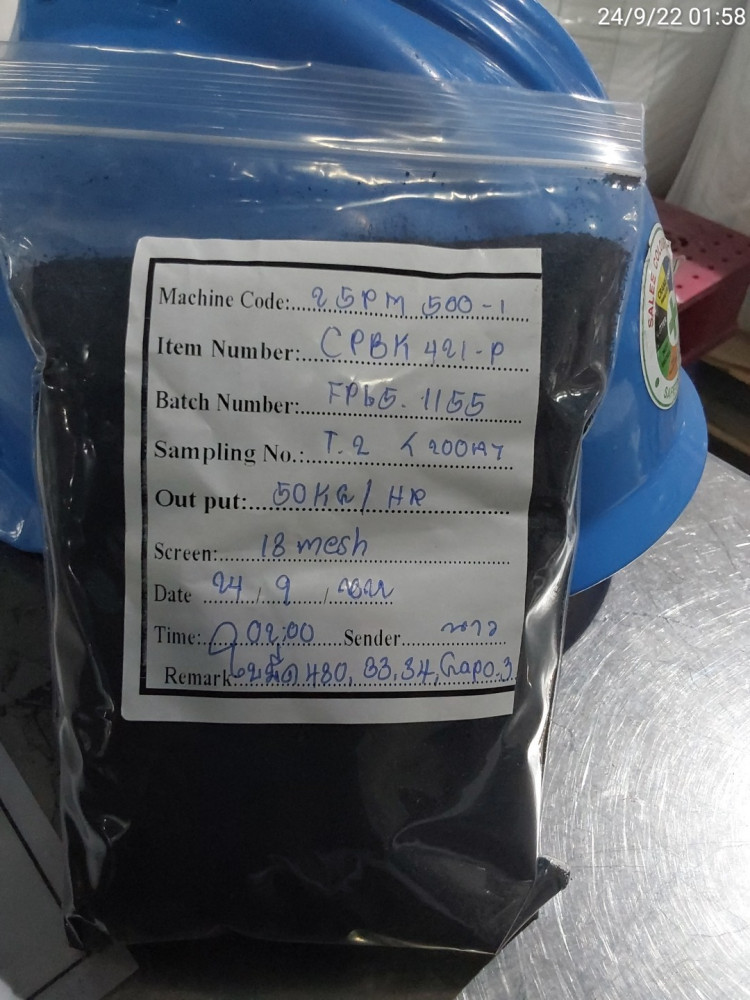 24/9/22 01:58
Machine Code: 25PM 500-1
Item Number: CPBK 421-P
Batch Number: FP65.1155
Sampling No.: T.2
Out put: 50KG/HR
Screen: 18 mesh
Date 24/9/2022
Time: 02:00 Sender
Remark ใบมีด 480, 33, 34, Gapo.3
SALES CO